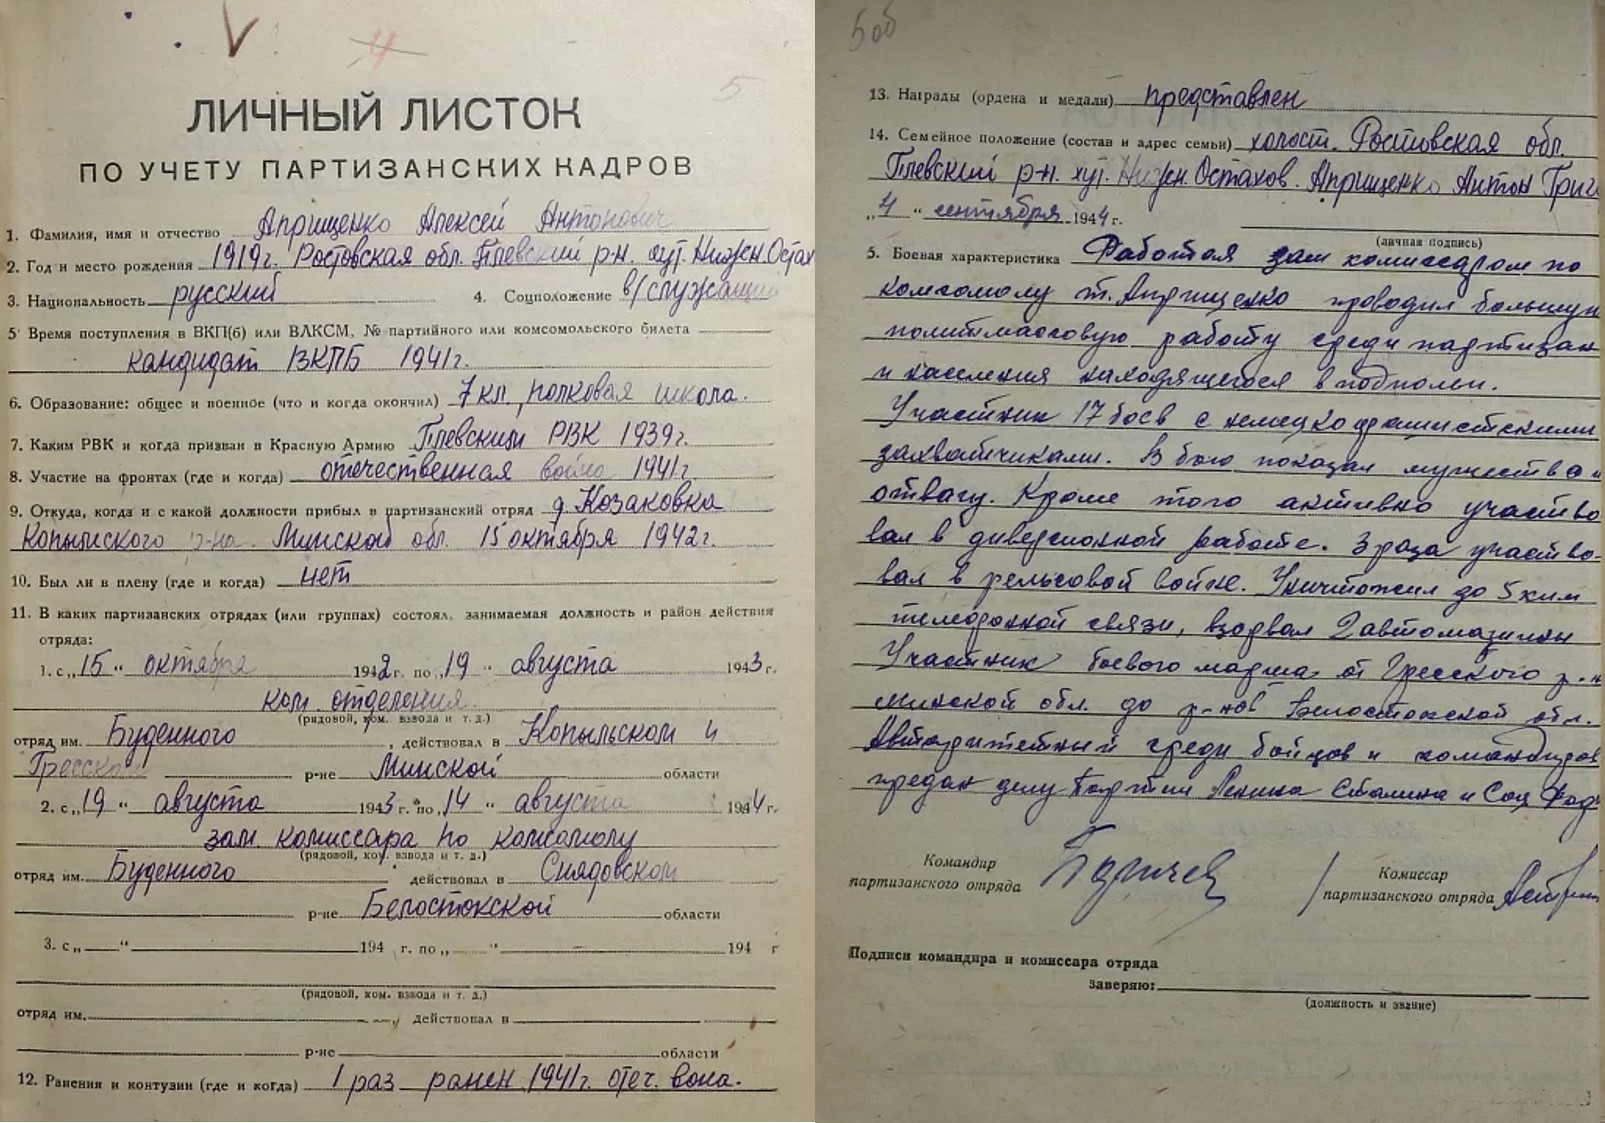 5
ЛИЧНЫЙ ЛИСТОК
ПО УЧЕТУ ПАРТИЗАНСКИХ КАДРОВ
1. Фамилия, имя и отчество Априщенко Алексей Антонович
2. Год и место рождения 1919г. Ростовская обл. Тлевский р-н. хут. Нижн. Остах
3. Национальность русский 4. Соцположение в/служащий
5 Время поступления в ВКП(б) или ВЛКСМ, № партийного или комсомольского билета
кандидат ВКПБ 1941г.
6. Образование: общее и военное (что и когда окончил) 7 кл., полковая школа.
7. Каким РВК и когда призван в Красную Армию Тлевским РВК 1939г.
8. Участие на фронтах (где и когда) отечественная война 1941г
9. Откуда, когда и с какой должности прибыл в партизанский отряд д. Козаковка
Копыльского р-на. Минской обл. 15 октября 1942г.
10. Был ли в плену (где и когда) нет
11. В каких партизанских отрядах (или группах) состоял, занимаемая должность и район действия
отряда:
1. с „15 " октября 1942 г. по „19 " августа 1943 г.
ком. отделения.
(рядовой, ком. взвода и т. д.)
отряд им. Буденного, действовал в Копыльском и
Гресском р-не Минской области
2. с „19 " августа 1943 г. по „14 " августа 1944 г.
зам. комиссара по комсомолу
(рядовой, ком. взвода и т. д.)
отряд им. Буденного действовал в Снядовском
р-не Белостокской области
3. с „ " 194 г. по „ " 194 г
(рядовой, ком. взвода и т. д.)
отряд им. действовал в
р-не области
12. Ранения и контузии (где и когда) 1 раз ранен 1941г. отеч. вона.
5об
13. Награды (ордена и медали) представлен
14. Семейное положение (состав и адрес семьи) холост. Ростовская обл.
Тлевский р-н. хут. Нижн. Остахов. Априщенко Антон Григ
„4 " сентября 1944 г.
(личная подпись)
5. Боевая характеристика Работая зам комиссаром по
комсомолу т. Априщенко проводил большую
политмассовую работу среди партизан
и населения находящегося в подполеи.
Участник 17 боев с немецкофашистскими
захватчиками. В бою показал мужества и
отвагу. Кроме того активно участво
вал в диверсионной работе. 3 раза участво-
вал в рельсовой войне. Уничтожил до 5 клм
телефонной связи, взорвал 2 автомашины
Участник боевого марша от Гресского р-н
минской обл. до р-нов Белостокской обл.
Авторитетный среди бойцов и командиров
предан делу Партии Ленина Сталина и Соц. Род
Командир
партизанского отряда
Комиссар
партизанского отряда
Подписи командира и комиссара отряда
заверяю:
(должность и звание)